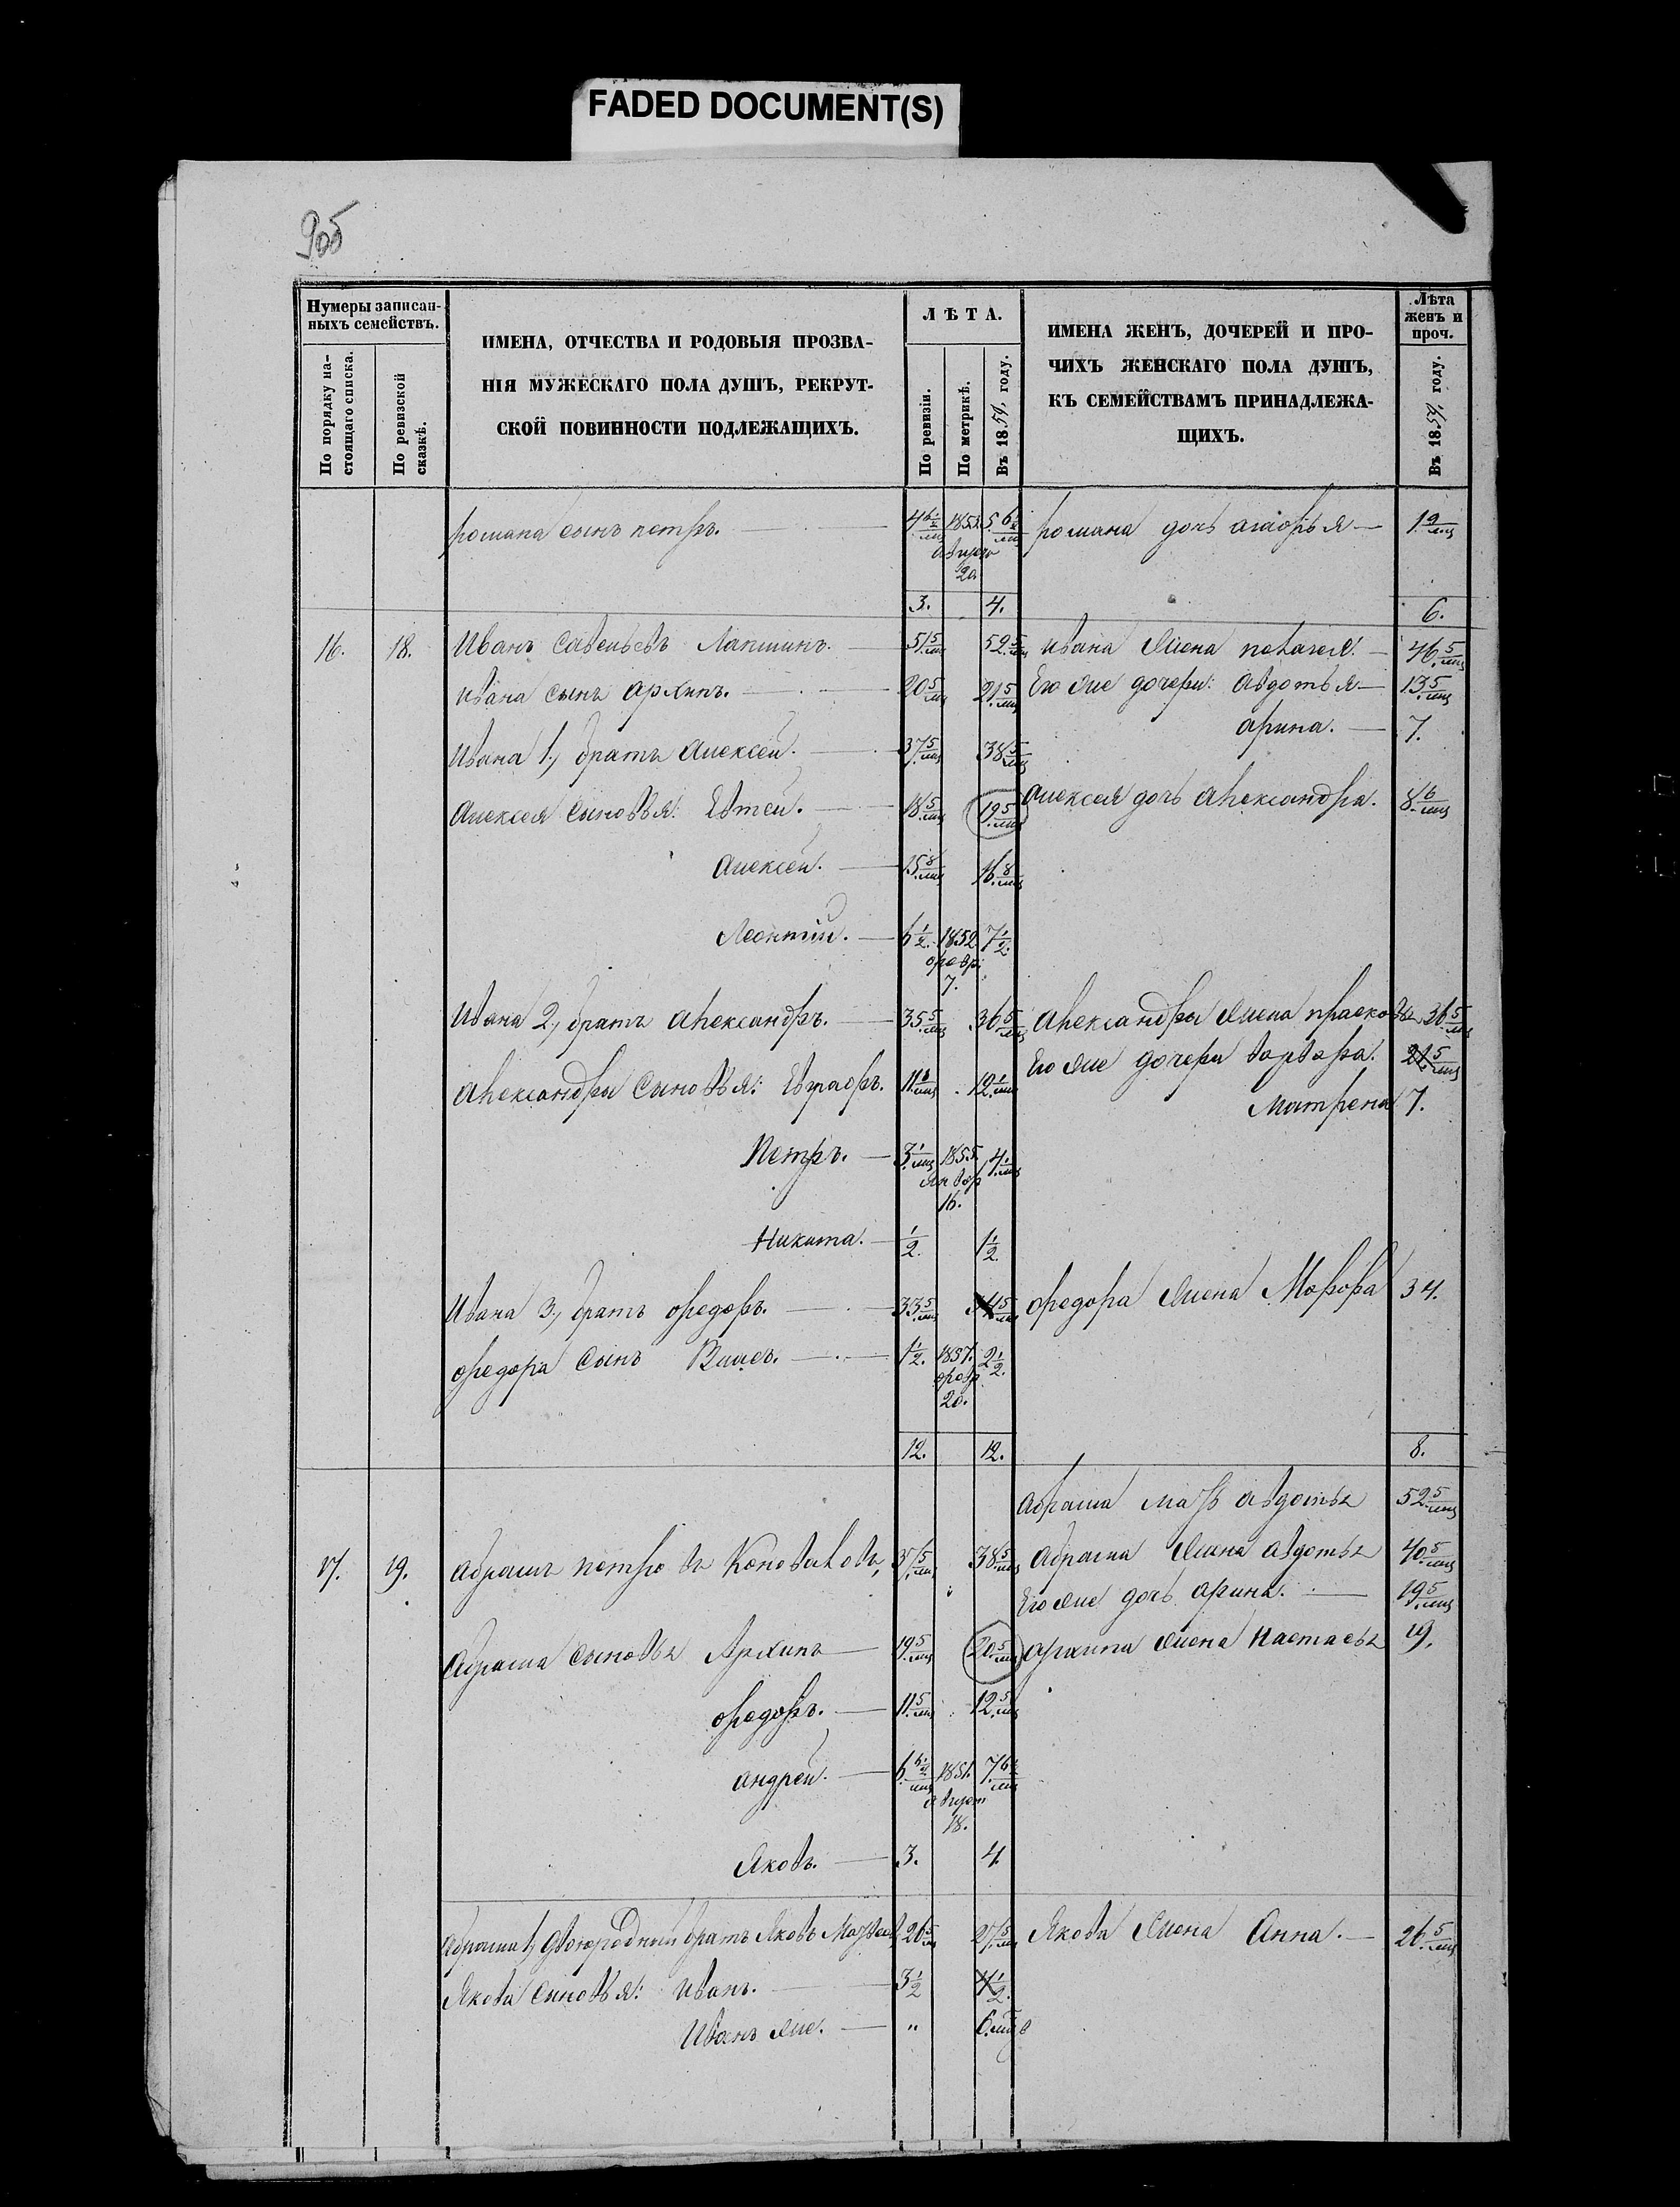 FADED DOCUMENT(S)
905
Нумеры записан-
ныхъ семействъ.
По порядку на-
стоящаго списка.
По ревизской
сказкѣ.
ИМЕНА, ОТЧЕСТВА И РОДОВЫЯ ПРОЗВА-
НІЯ МУЖЕСКАГО ПОЛА ДУШЪ, РЕКРУТ-
СКОЙ ПОВИННОСТИ ПОДЛЕЖАЩИХЪ.
ЛѢТА.
По ревизіи.
По метрикѣ.
Въ 1859, году.
ИМЕНА ЖЕНЪ, ДОЧЕРЕЙ И ПРО-
ЧИХЪ ЖЕНСКАГО ПОЛА ДУШЪ,
КЪ СЕМЕЙСТВАМЪ ПРИНАДЛЕЖА-
ЩИХЪ.
Лѣта
женъ и
проч.
Въ 1859, году.
романа сынъ петръ. 4 6½/мц 1853. 5 6½/мц романа дочь 1 9/мц
августа
20
3. 4. 6.
16. 18. Иванъ Савельевъ Лапшинъ. 51 5/мц 52 5/мц ивана жена пелагея. 46 5/мц
ивана сынъ архипъ. 20 5/мц 21 5/мц Его же дочери: авдотья 13 5/мц
арина. 7.
Ивана 1, братъ алексей. 37 5/мц 38 5/мц
алексея сыновья: Евтей. 18 5/мц 19 5/мц алексея дочь александра. 8 6/мц
алексей. 15 8/мц 16 8/мц
Леонтій. 6½. 1852 7½.
февр.
7.
Ивана 2, братъ александръ. 35 5/мц 36 5/мц александра жена прасковья 36 5/мц
Его же дочери варвара. 21 5/мц
александра сыновья: Евграфъ. 11 1/мц 12 1/мц
Матрена 7.
Петръ. 3 1/мц 1855. 4 1/мц
Январ
16.
Никита. ½. 1½.
Ивана 3, братъ федоръ. 33 5/мц 34 5/мц федора жена Марфа 34.
федора сынъ 1½. 1857. 2½.
февр
20.
12. 12. 8.
абрама мать авдотья 52 5/мц
17. 19. абрамъ петровъ Коноваловъ, 37 5/мц 38 5/мц абрама жена авдотья 40 5/мц
Его же дочь арина. 19 5/мц
абрама сыновья Архипъ 19 5/мц 20 5/мц архипа жена настасья 19.
федоръ. 11 5/мц 12 5/мц
андрей. 6 6½/мц 1851. 7 6½/мц
август
18.
Яковъ. 3. 4.
абрама 1, двоюродный братъ Яковъ 26 5/мц 27 5/мц Якова жена Анна. 26 5/мц
Якова сыновья: иванъ. 3½ 4½.
Иванъ же. " 6 мцв